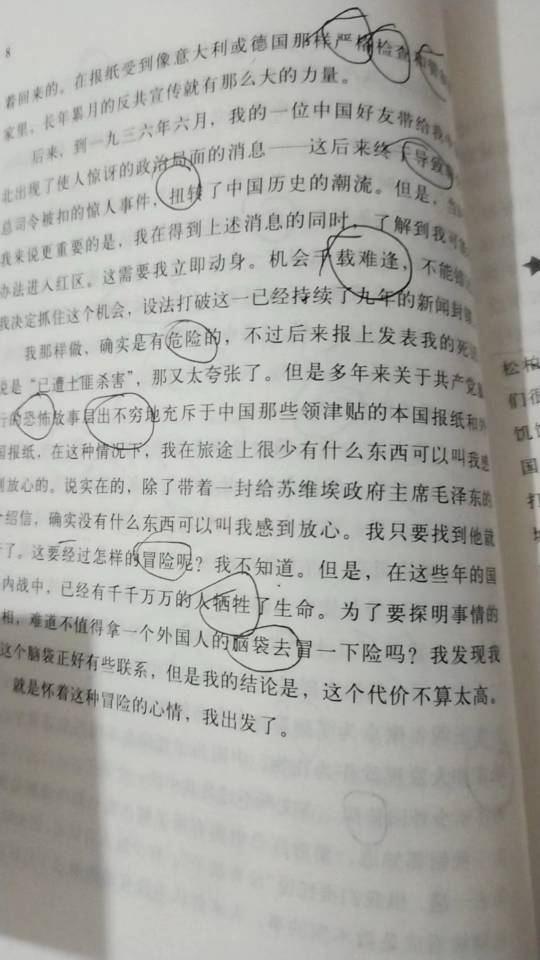 8
着回来的。在报纸受到像意大利或德国那样严格检查和
家里，长年累月的反共宣传就有那么大的力量。
后来，到一九三六年六月，我的一位中国好友带给我
北出现了使人惊讶的政治局面的消息——这后来终于导致
总司令被扣的惊人事件，扭转了中国历史的潮流。但是，
我来说更重要的是，我在得到上述消息的同时，了解到我可
办法进入红区。这需要我立即动身。机会千载难逢，不能错
我决定抓住这个机会，设法打破这一已经持续了九年的新闻封
我那样做，确实是有危险的，不过后来报上发表我的死
说是“已遭土匪杀害”，那又太夸张了。但是多年来关于共产党
行的恐怖故事层出不穷地充斥于中国那些领津贴的本国报纸和外
国报纸，在这种情况下，我在旅途上很少有什么东西可以叫我感
到放心的。说实在的，除了带着一封给苏维埃政府主席毛泽东的
介绍信，确实没有什么东西可以叫我感到放心。我只要找到他就
了。这要经过怎样的冒险呢？我不知道。但是，在这些年的国
内战中，已经有千千万万的人牺牲了生命。为了要探明事情的
相，难道不值得拿一个外国人的脑袋去冒一下险吗？我发现我
这个脑袋正好有些联系，但是我的结论是，这个代价不算太高。
就是怀着这种冒险的心情，我出发了。
松柏
们很
饥
国
打